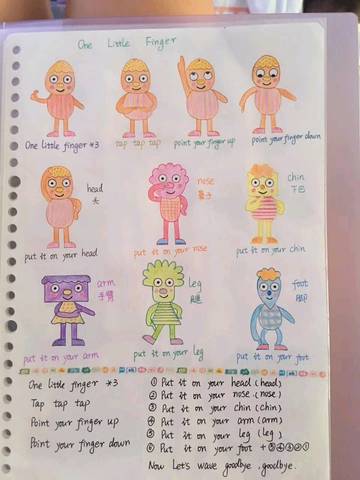 One Little Finger
One little finger *3
tap tap tap
point your finger up
point your finger down
head
头
nose
鼻子
chin
下巴
put it on your head
put it on your nose
put it on your chin
arm
手臂
leg
腿
foot
脚
put it on your arm
put it on your leg
put it on your foot
One little finger *3
Tap tap tap
Point your finger up
Point your finger down
① Put it on your head (head)
② Put it on your nose (nose)
③ Put it on your chin (chin)
④ Put it on your arm (arm)
⑤ Put it on your leg (leg)
⑥ Put it on your foot +⑤④③②①
Now Let's wave goodbye, goodbye.